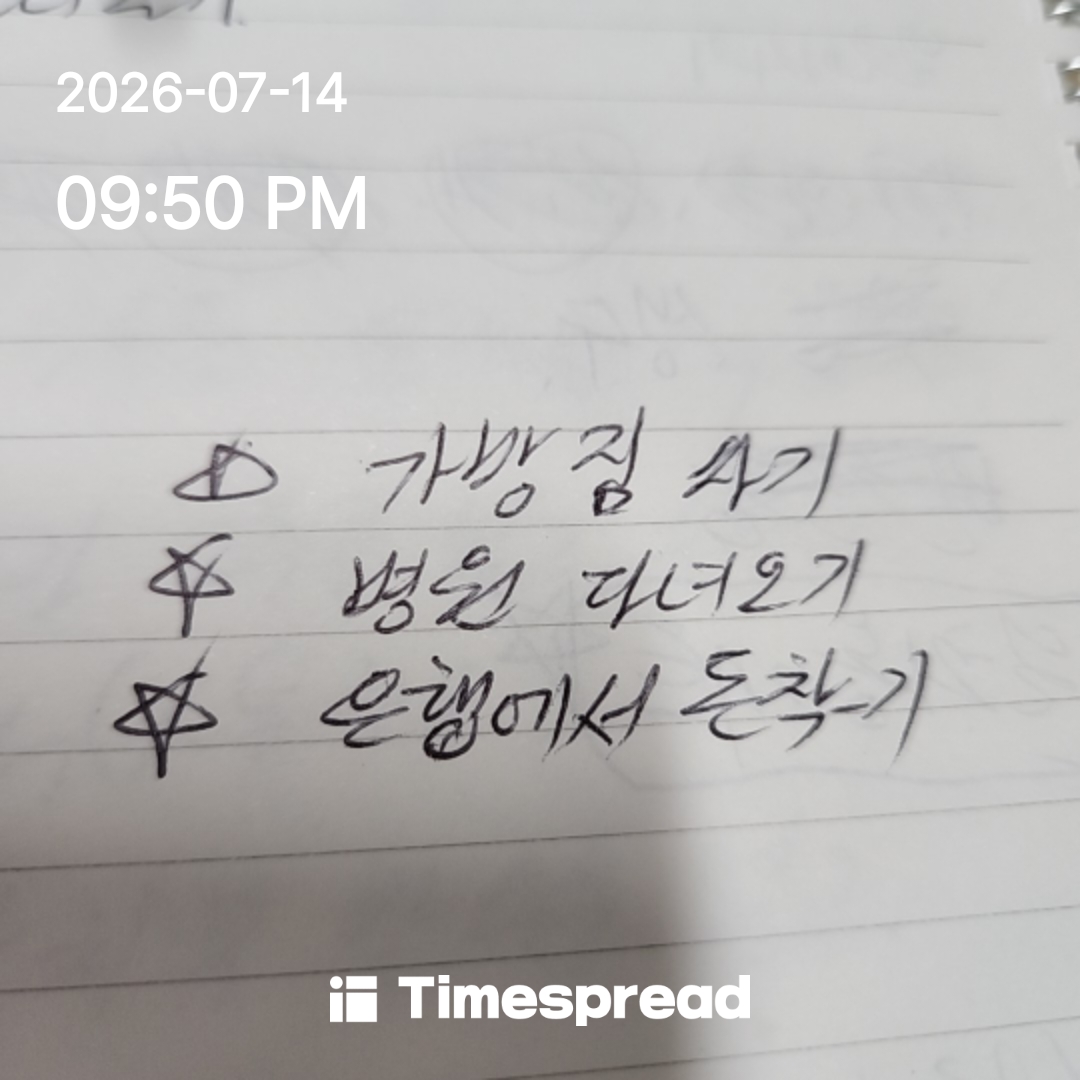 2026-07-14
09:50 PM
가방 짐 싸기
병원 다녀오기
은행에서 돈찾기
Timespread